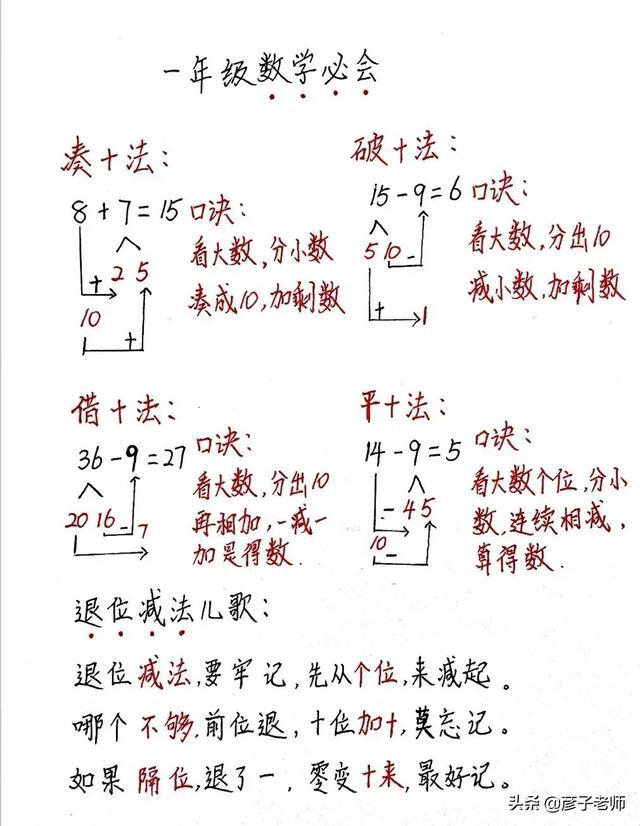 一年级数学必会
凑十法：
8+7=15
2 5
+
10
+
口诀：
看大数，分小数
凑成10，加剩数
破十法：
15-9=6
5 10 -
+ 1
口诀：
看大数，分出10
减小数，加剩数
借十法：
36-9=27
20 16 - 7
口诀：
看大数，分出10
再相加，一减一
加是得数.
平十法：
14-9=5
- 4 5
10 -
口诀：
看大数个位，分小
数，连续相减，
算得数.
退位减法儿歌：
退位减法，要牢记，先从个位，来减起。
哪个不够，前位退，十位加十，莫忘记。
如果隔位，退了一，零变十来，最好记。
头条@彦子老师